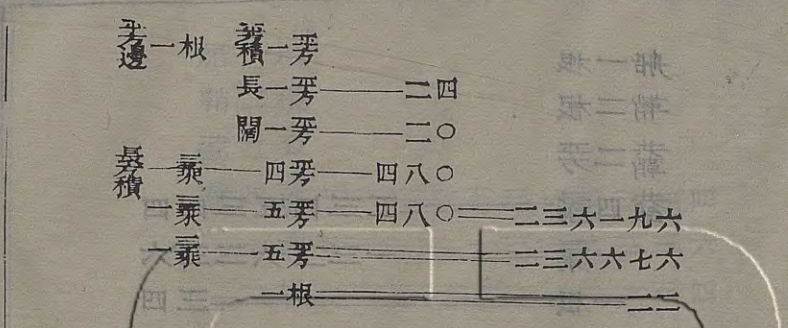 平方邊一根　平方積一平方
長一平方——二四
闊一平方——二〇
長方積一三乘——四平方——四八〇
一三乘——五平方——四八〇══二三六一九六
一三乘——五平方══二三六六七六
一根══二二